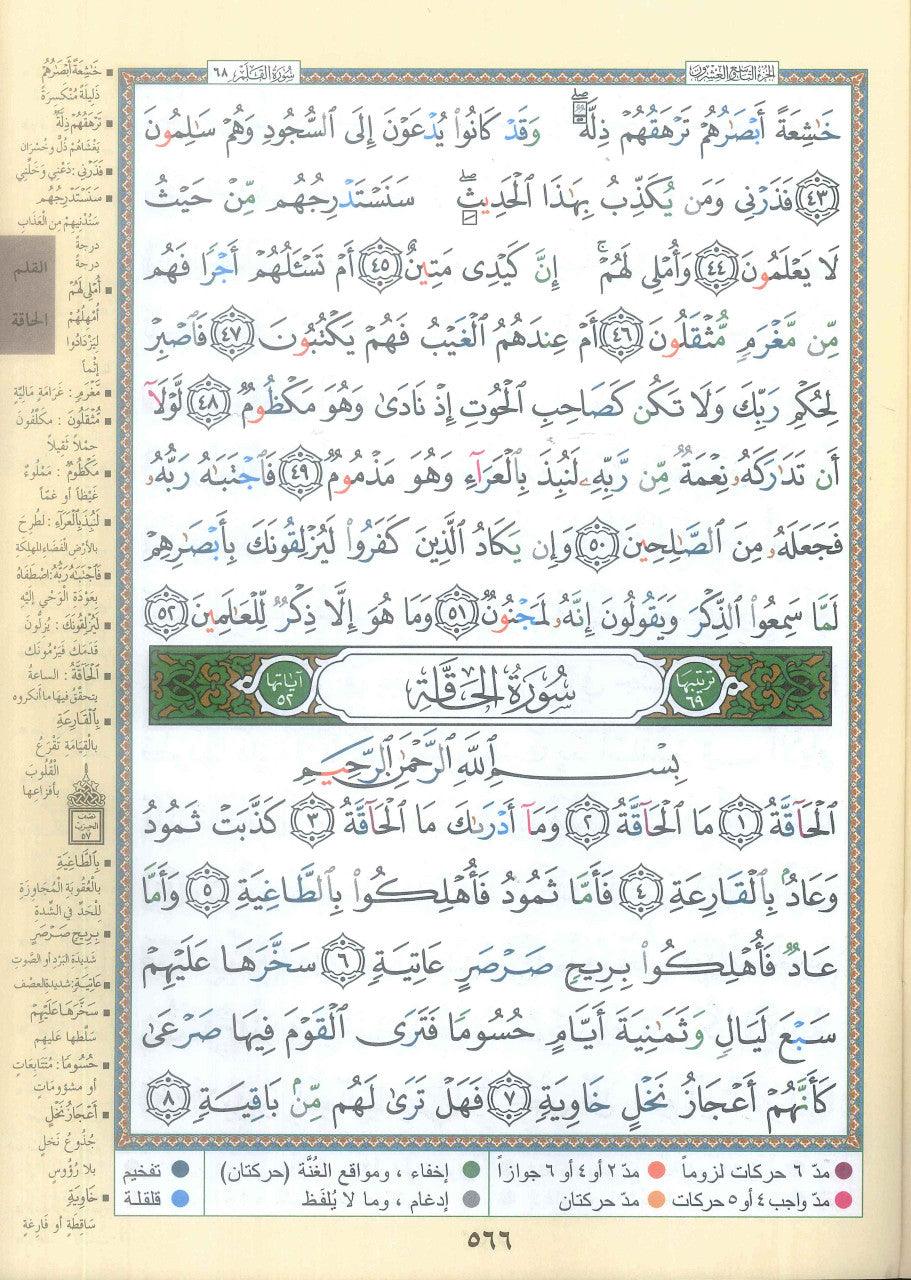 الجزء التاسع والعشرون
سُورَةُ القَلَمِ ٦٨
خَٰشِعَةً أَبْصَٰرُهُمْ تَرْهَقُهُمْ ذِلَّةٌ ۖ وَقَدْ كَانُوا۟ يُدْعَوْنَ إِلَى ٱلسُّجُودِ وَهُمْ سَٰلِمُونَ
٤٣ فَذَرْنِى وَمَن يُكَذِّبُ بِهَٰذَا ٱلْحَدِيثِ ۖ سَنَسْتَدْرِجُهُم مِّنْ حَيْثُ
لَا يَعْلَمُونَ ٤٤ وَأُمْلِى لَهُمْ ۚ إِنَّ كَيْدِى مَتِينٌ ٤٥ أَمْ تَسْـَٔلُهُمْ أَجْرًا فَهُم
مِّن مَّغْرَمٍ مُّثْقَلُونَ ٤٦ أَمْ عِندَهُمُ ٱلْغَيْبُ فَهُمْ يَكْتُبُونَ ٤٧ فَٱصْبِرْ
لِحُكْمِ رَبِّكَ وَلَا تَكُن كَصَاحِبِ ٱلْحُوتِ إِذْ نَادَىٰ وَهُوَ مَكْظُومٌ ٤٨ لَّوْلَآ
أَن تَدَٰرَكَهُۥ نِعْمَةٌ مِّن رَّبِّهِۦ لَنُبِذَ بِٱلْعَرَآءِ وَهُوَ مَذْمُومٌ ٤٩ فَٱجْتَبَٰهُ رَبُّهُۥ
فَجَعَلَهُۥ مِنَ ٱلصَّٰلِحِينَ ٥٠ وَإِن يَكَادُ ٱلَّذِينَ كَفَرُوا۟ لَيُزْلِقُونَكَ بِأَبْصَٰرِهِمْ
لَمَّا سَمِعُوا۟ ٱلذِّكْرَ وَيَقُولُونَ إِنَّهُۥ لَمَجْنُونٌ ٥١ وَمَا هُوَ إِلَّا ذِكْرٌ لِّلْعَٰلَمِينَ ٥٢
ترتيبها ٦٩
سُورَةُ الحَاقَّةِ
آياتها ٥٢
بِسْمِ ٱللَّهِ ٱلرَّحْمَٰنِ ٱلرَّحِيمِ
ٱلْحَآقَّةُ ١ مَا ٱلْحَآقَّةُ ٢ وَمَآ أَدْرَىٰكَ مَا ٱلْحَآقَّةُ ٣ كَذَّبَتْ ثَمُودُ
وَعَادٌۢ بِٱلْقَارِعَةِ ٤ فَأَمَّا ثَمُودُ فَأُهْلِكُوا۟ بِٱلطَّاغِيَةِ ٥ وَأَمَّا
عَادٌ فَأُهْلِكُوا۟ بِرِيحٍ صَرْصَرٍ عَاتِيَةٍ ٦ سَخَّرَهَا عَلَيْهِمْ
سَبْعَ لَيَالٍ وَثَمَٰنِيَةَ أَيَّامٍ حُسُومًا فَتَرَى ٱلْقَوْمَ فِيهَا صَرْعَىٰ
كَأَنَّهُمْ أَعْجَازُ نَخْلٍ خَاوِيَةٍ ٧ فَهَلْ تَرَىٰ لَهُم مِّنۢ بَاقِيَةٍ ٨
خَٰشِعَةً أَبْصَٰرُهُمْ
ذَلِيلَةً مُنْكَسِرَةً
تَرْهَقُهُمْ ذِلَّةٌ
يَغْشَاهُمْ ذُلٌّ وخُسْرَان
فَذَرْنِي : دَعْنِي وَخَلِّنِي
سَنَسْتَدْرِجُهُم
سَنُدْنِيهِمْ مِنَ العَذَابِ
درجةً
درجةً
أُمْلِي لَهُمْ
أُمْهِلُهُمْ
لِيَزْدَادُوا
إثْماً
مَغْرَمٍ : غَرَامَةٍ مَالِيَّةٍ
مُّثْقَلُونَ : مكلَّفُونَ
حِمْلاً ثَقِيلاً
مَكْظُومٌ : مَمْلُوءٌ
غَيْظاً أو غمّاً
لَنُبِذَ بِالْعَرَاءِ : لَطُرِحَ
بالأرْضِ الفَضَاءِ المهلِكةِ
فَاجْتَبَاهُ رَبُّهُ : اصْطَفَاهُ
بِعَوْدَةِ الوَحْيِ إليْهِ
لَيُزْلِقُونَكَ : يُزِلُّونَ
قَدَمَكَ فَيَرْمُونَكَ
الْحَاقَّةُ : الساعةُ
يتحقَّقُ فيها ما أنكروه
بِالْقَارِعَةِ
بالقِيَامَةِ تَقْرَعُ
القُلُوبَ
بأفزاعِها
نصف
الحزب
٥٧
بِالطَّاغِيَةِ
بالعُقُوبَةِ المُجَاوِزَةِ
لِلْحَدِّ في الشِّدةِ
بِرِيحٍ صَرْصَرٍ
شديدةِ البَرْدِ أو الصَّوْتِ
عَاتِيَةٍ : شديدةِ العصْف
سَخَّرَهَا عَلَيْهِمْ
سَلَّطَها عليهم
حُسُومًا : مُتَتَابِعَاتٍ
أو مشؤوماتٍ
أَعْجَازُ نَخْلٍ
جُذُوعُ نَخْلٍ
بلا رُؤُوسٍ
خَاوِيَةٍ
سَاقِطَةٍ أو فَارِغَةٍ
القلم
الحاقة
مدّ ٦ حركات لزوماً
مدّ ٢ أو ٤ أو ٦ جوازاً
إخفاء ، ومواقع الغُنَّة (حركتان)
تفخيم
مدّ واجب ٤ أو ٥ حركات
مدّ حركتان
إدغام ، وما لا يُلفَظ
قلقلة
٥٦٦